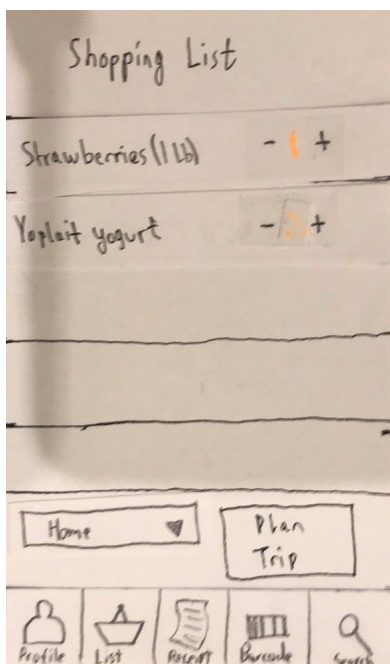 Shopping List
Strawberries (1 Lb) - 1 +
Yoplait yogurt - 2 +
Home
Plan
Trip
Profile List Receipt Barcode Search